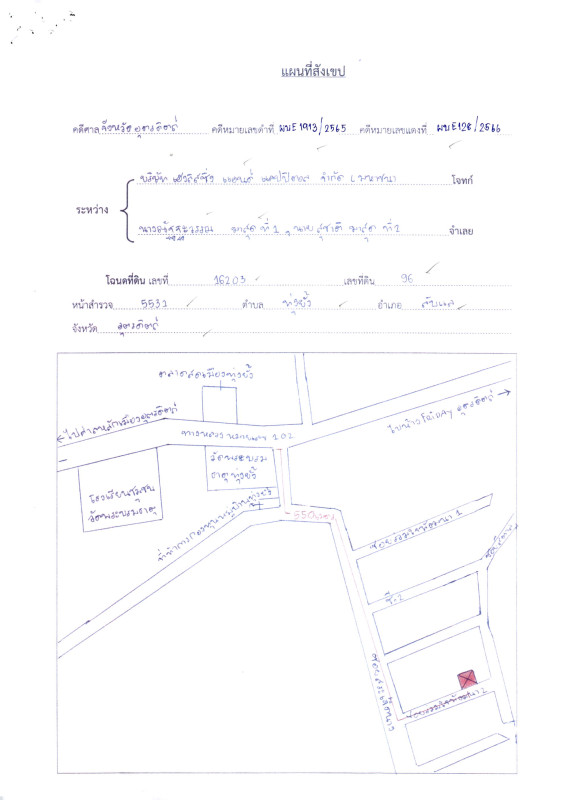 แผนที่สังเขป
คดีศาลจังหวัดอุตรดิตถ์ คดีหมายเลขดำที่ ผบE1913/2565 คดีหมายเลขแดงที่ ผบE128/2566
บริษัท จำกัด (มหาชน) โจทก์
ระหว่าง
มาสุด ที่ 1, นายสุชาติ มาสุด จำเลย
โฉนดที่ดิน เลขที่ 16203 เลขที่ดิน 96
หน้าสำรวจ 5531 ตำบล ทุ่งยั้ง อำเภอ ลับแล
จังหวัด อุตรดิตถ์
ตลาดสดเมืองทุ่งยั้ง
ไปศาลหลักเมืองอุตรดิตถ์
อุตรดิตถ์
ทางหลวงหมายเลข 102
วัดพระบรม
ธาตุทุ่งยั้ง
โรงเรียนชุมชน
วัดพระบรมธาตุ
ที่ทำการกองทุนหมู่บ้านทุ่งยั้ง
550เมตร
ซ.2